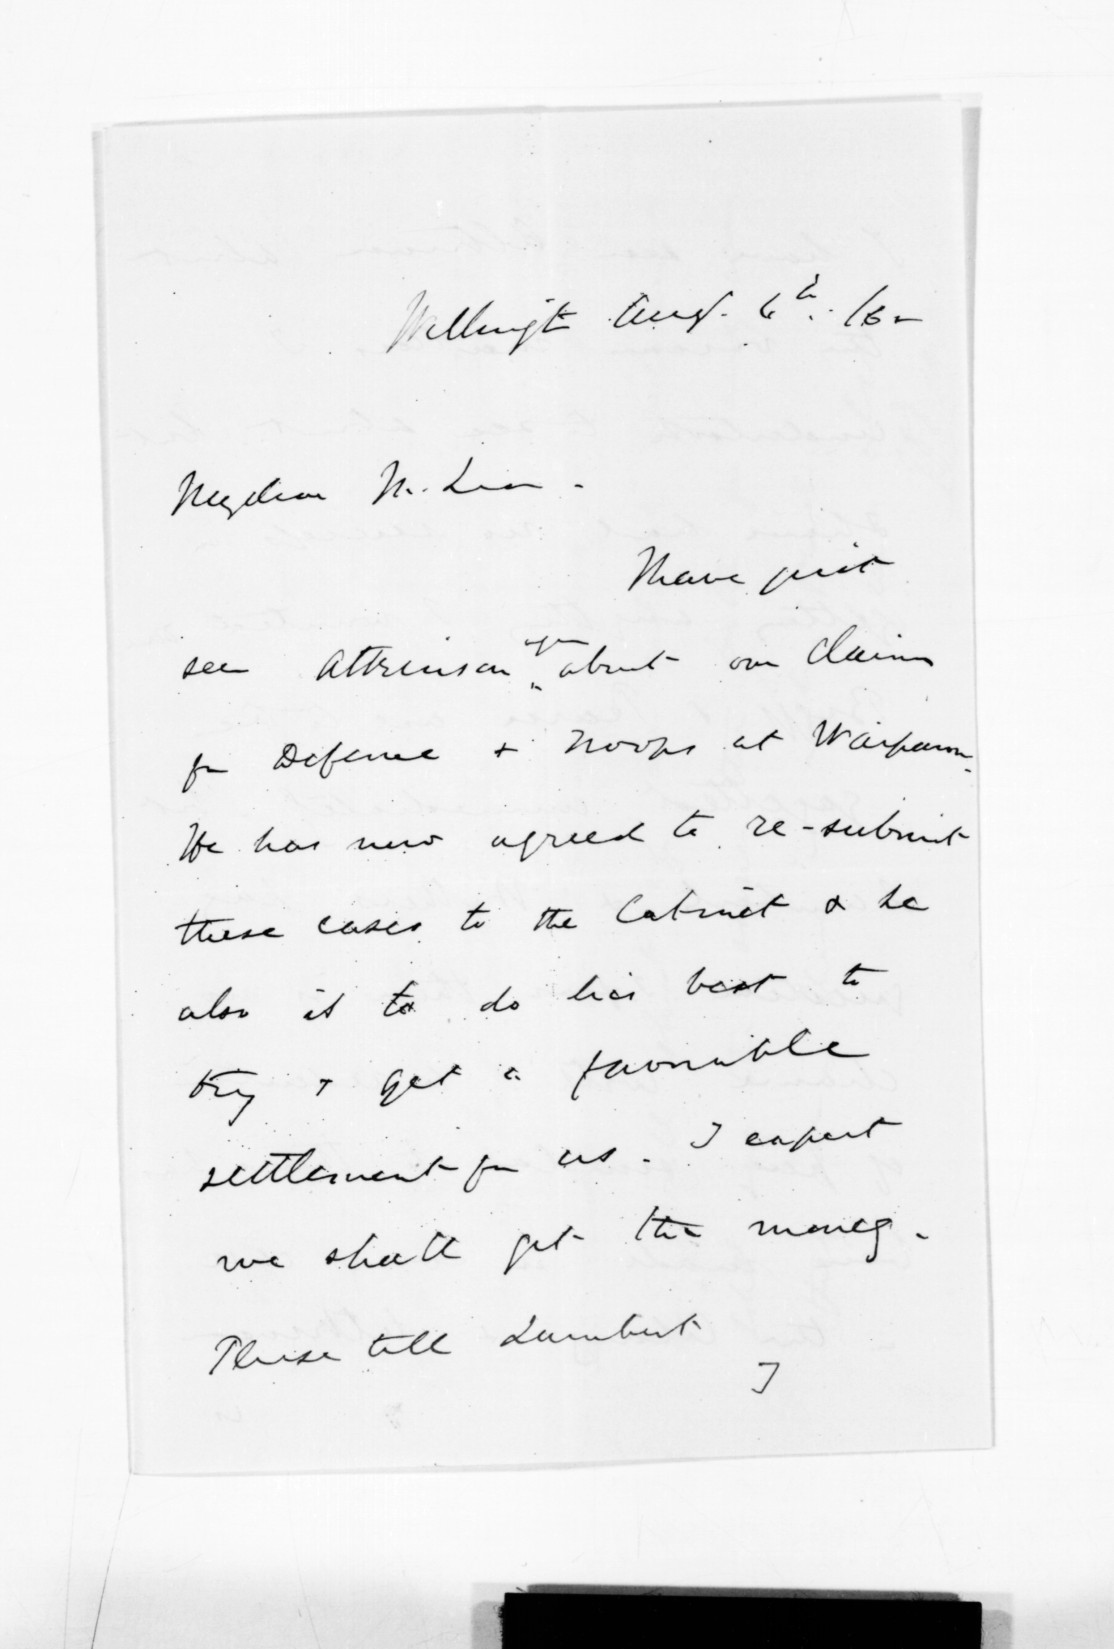 Wellingtn Augt. 6th. /6
My dear McLean -
I have just
see Atkinson again about our claims
for Defence & Troops at Waipawa.
He has now agreed to re-submit
these cases to the Cabinet & he
also is to do his best to
try & get a favourable
settlement for us. I expect
we shall get the money.
Please tell Lambert
I